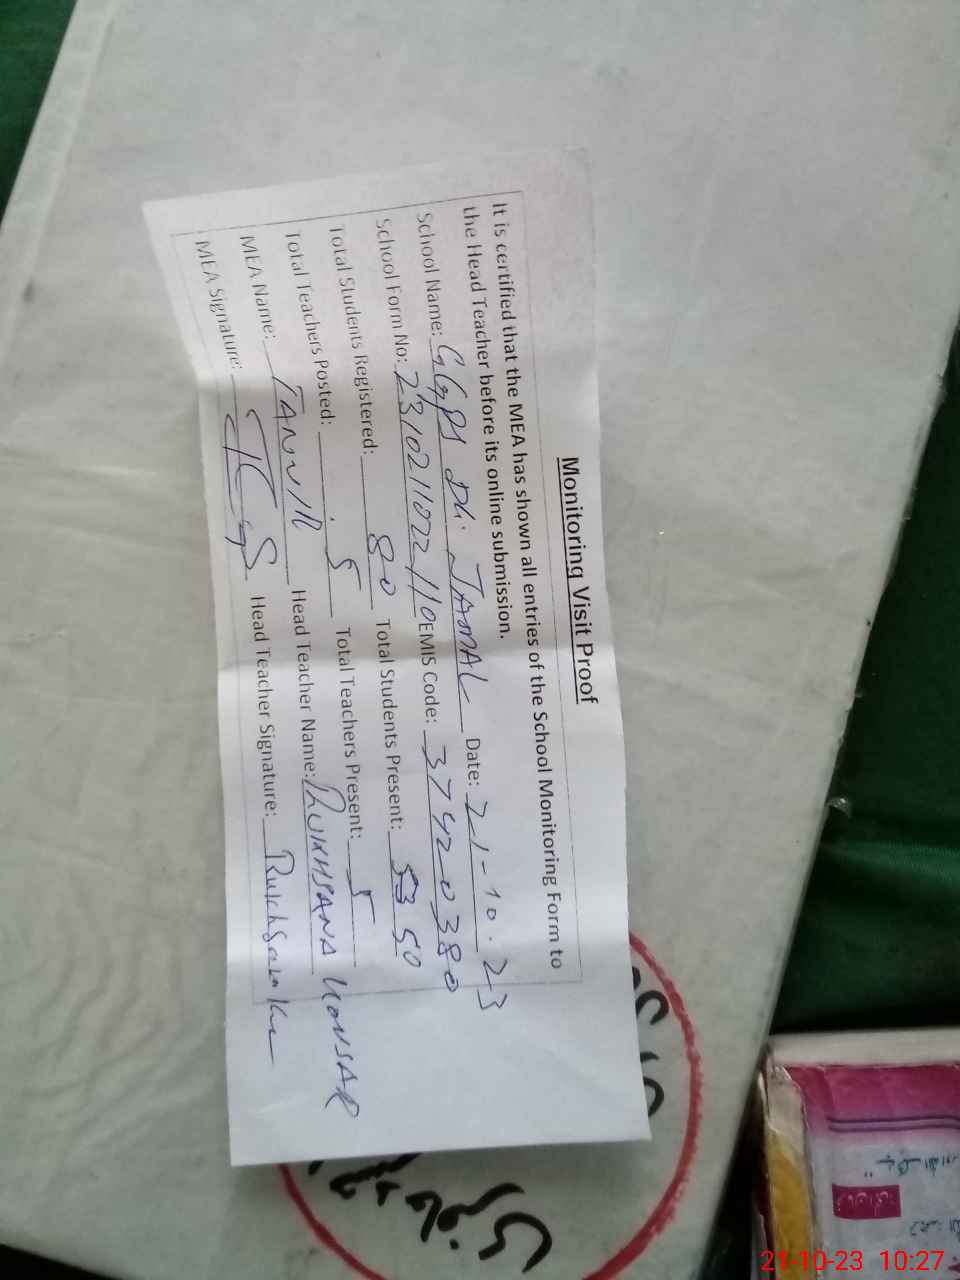 Monitoring Visit Proof
It is certified that the MEA has shown all entries of the School Monitoring Form to
the Head Teacher before its online submission.
School Name: GGPS Dk. JAMAL Date: 21-10.23
School Form No: 2310211022110 EMIS Code: 37420380
Total Students Registered: 80 Total Students Present: 50
Total Teachers Posted: 5 Total Teachers Present: 5
MEA Name: TANVIR Head Teacher Name: RUKHSANA KOUSAR
MEA Signature: Head Teacher Signature: Rukhsana
21-10-23 10:27